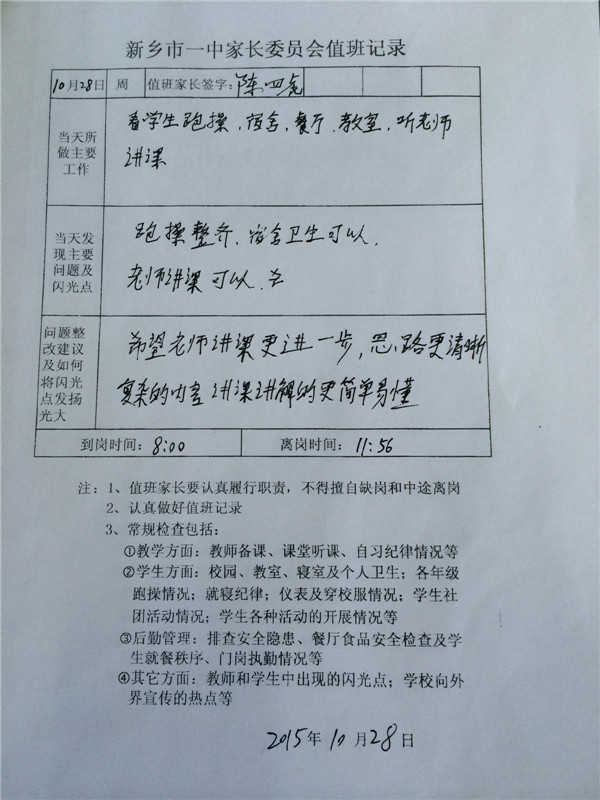 新乡市一中家长委员会值班记录
10月28日 周 值班家长签字:陈四尧
当天所
做主要
工作
看学生跑操,宿舍,餐厅.教室,听老师
讲课
当天发
现主要
问题及
闪光点
跑操整齐.宿舍卫生可以.
老师讲课可以.
问题整
改建议
及如何
将闪光
点发扬
光大
希望老师讲课更进一步,思路更清晰
复杂的内容讲课讲解的更简单易懂
到岗时间:8:00 离岗时间:11:56
注:1、值班家长要认真履行职责,不得擅自缺岗和中途离岗
2、认真做好值班记录
3、常规检查包括:
①教学方面:教师备课、课堂听课、自习纪律情况等
②学生方面:校园、教室、寝室及个人卫生;各年级
跑操情况;就寝纪律;仪表及穿校服情况;学生社
团活动情况;学生各种活动的开展情况等
③后勤管理:排查安全隐患、餐厅食品安全检查及学
生就餐秩序、门岗执勤情况等
④其它方面:教师和学生中出现的闪光点;学校向外
界宣传的热点等
2015年10月28日